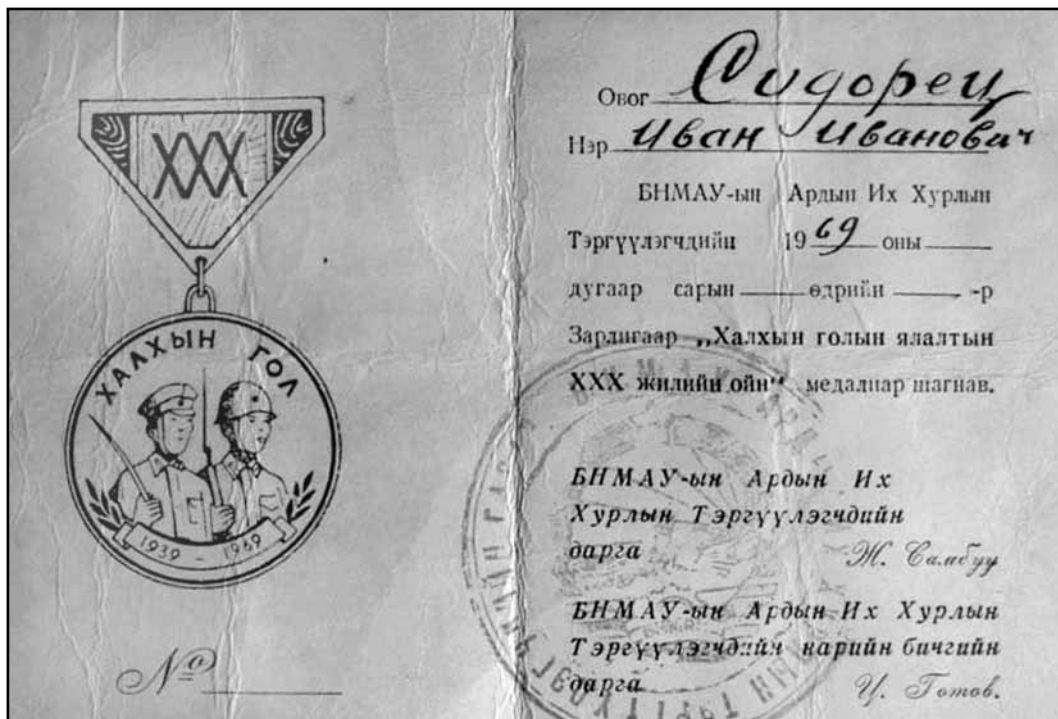 XXX
ХАЛХЫН ГОЛ
1939 - 1969
№
Овог Сидорец
Нэр Иван Иванович
БНМАУ-ын Ардын Их Хурлын
Тэргүүлэгчдийн 1969 оны
дугаар сарын өдрийн -р
Зарлигаар „Халхын голын ялалтын
XXX жилийн ойн“ медалиар шагнав.
БНМАУ-ын Ардын Их
Хурлын Тэргүүлэгчдийн
дарга Ж. Самбуу
БНМАУ-ын Ардын Их Хурлын
Тэргүүлэгчдийн нарийн бичгийн
дарга Ц. Готов.